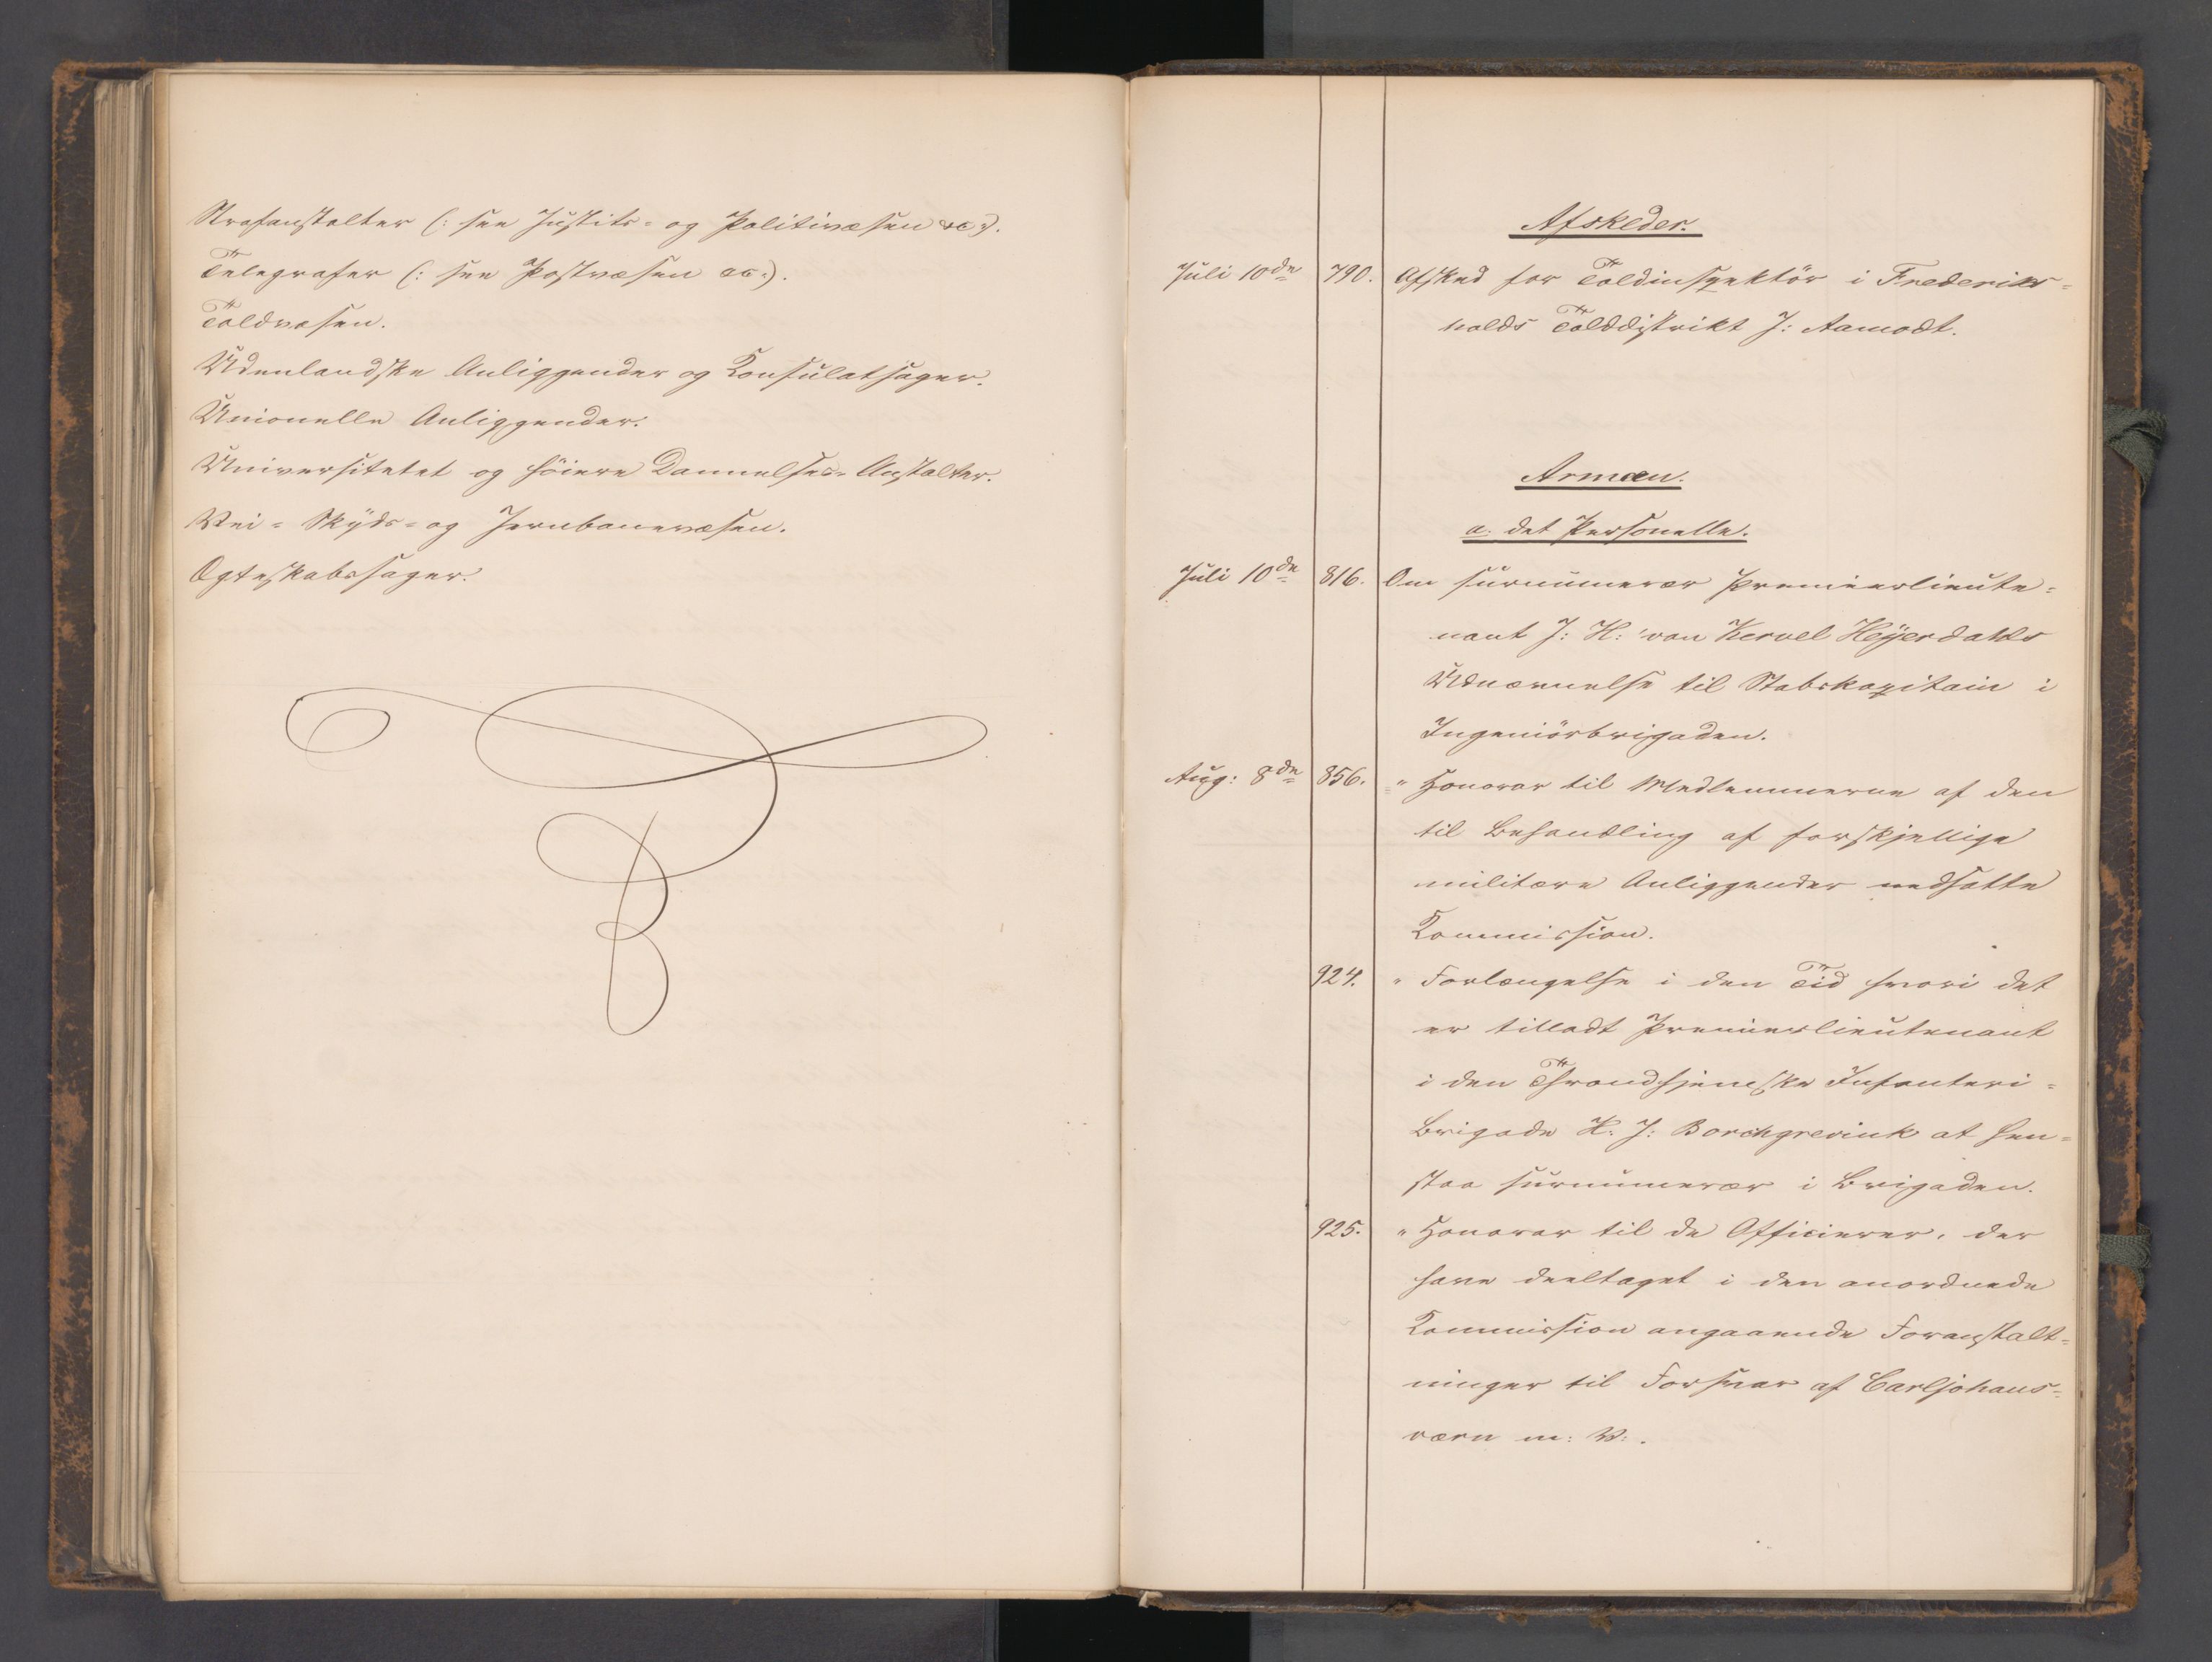 Strafanstalter (: see Justits- og Politivæsen &c:).
Telegrafer (: see Postvæsen &c:).
Toldvæsen.
Udenlandske Anliggender og Konsulatsager.
Unionelle Anliggender.
Universitetet og höiere Dannelses-Anstalter.
Vei- Skyds- og Jernbanevæsen.
Ægteskabssager.
Afskeder.
Juli 10de 790. Afsked for Toldinspektör i Frederiks-
halds Tolddistrikt J: Aamodt.
Armeen.
a. det Personelle.
Juli 10de 816. Om surnumerær Premierlieute-
nant J: H: van Kervel Heyerdahls
Udnævnelse til Stabskapitain i
Ingeniörbrigaden.
Aug: 8de 856. " Honorar til Medlemmerne af den
til Behandling af forskjellige
militære Anliggender nedsatte
Kommission.
924. " Forlængelse i den Tid hvori det
er tilladt Premierlieutenant
i den Throndhjemske Infanteri-
Brigade H: J: Borchgrevink at hen-
staa surnumerær i Brigaden.
925. " Honorar til de Officierer, der
have deeltaget i den anordnede
Kommission angaaende Foranstalt-
ninger til Forsvar af Carljohans-
værn m: V:.